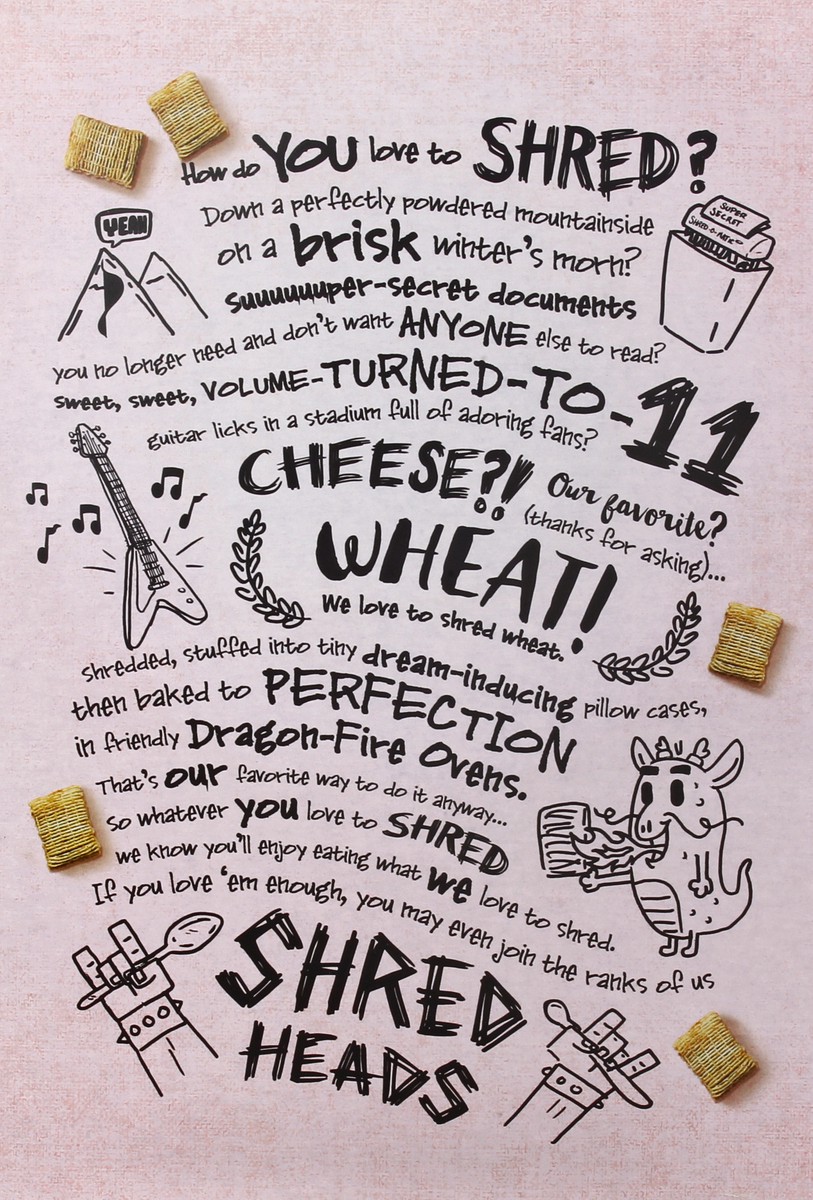 How do YOU love to SHRED?
Down a perfectly powdered mountainside
on a brisk winter's morn?
YEAH
SUPER SECRET
SHRED-O-MATIC
suuuuuuper-secret documents
you no longer need and don't want ANYONE else to read?
sweet, sweet, VOLUME-TURNED-TO-11
guitar licks in a stadium full of adoring fans?
CHEESE?! Our favorite?
(thanks for asking)...
WHEAT!
We love to shred wheat.
shredded, stuffed into tiny dream-inducing pillow cases,
then baked to PERFECTION
in friendly Dragon-Fire Ovens.
That's our favorite way to do it anyway...
so whatever you love to SHRED
we know you'll enjoy eating what we love to shred.
If you love 'em enough, you may even join the ranks of us
SHRED
HEADS